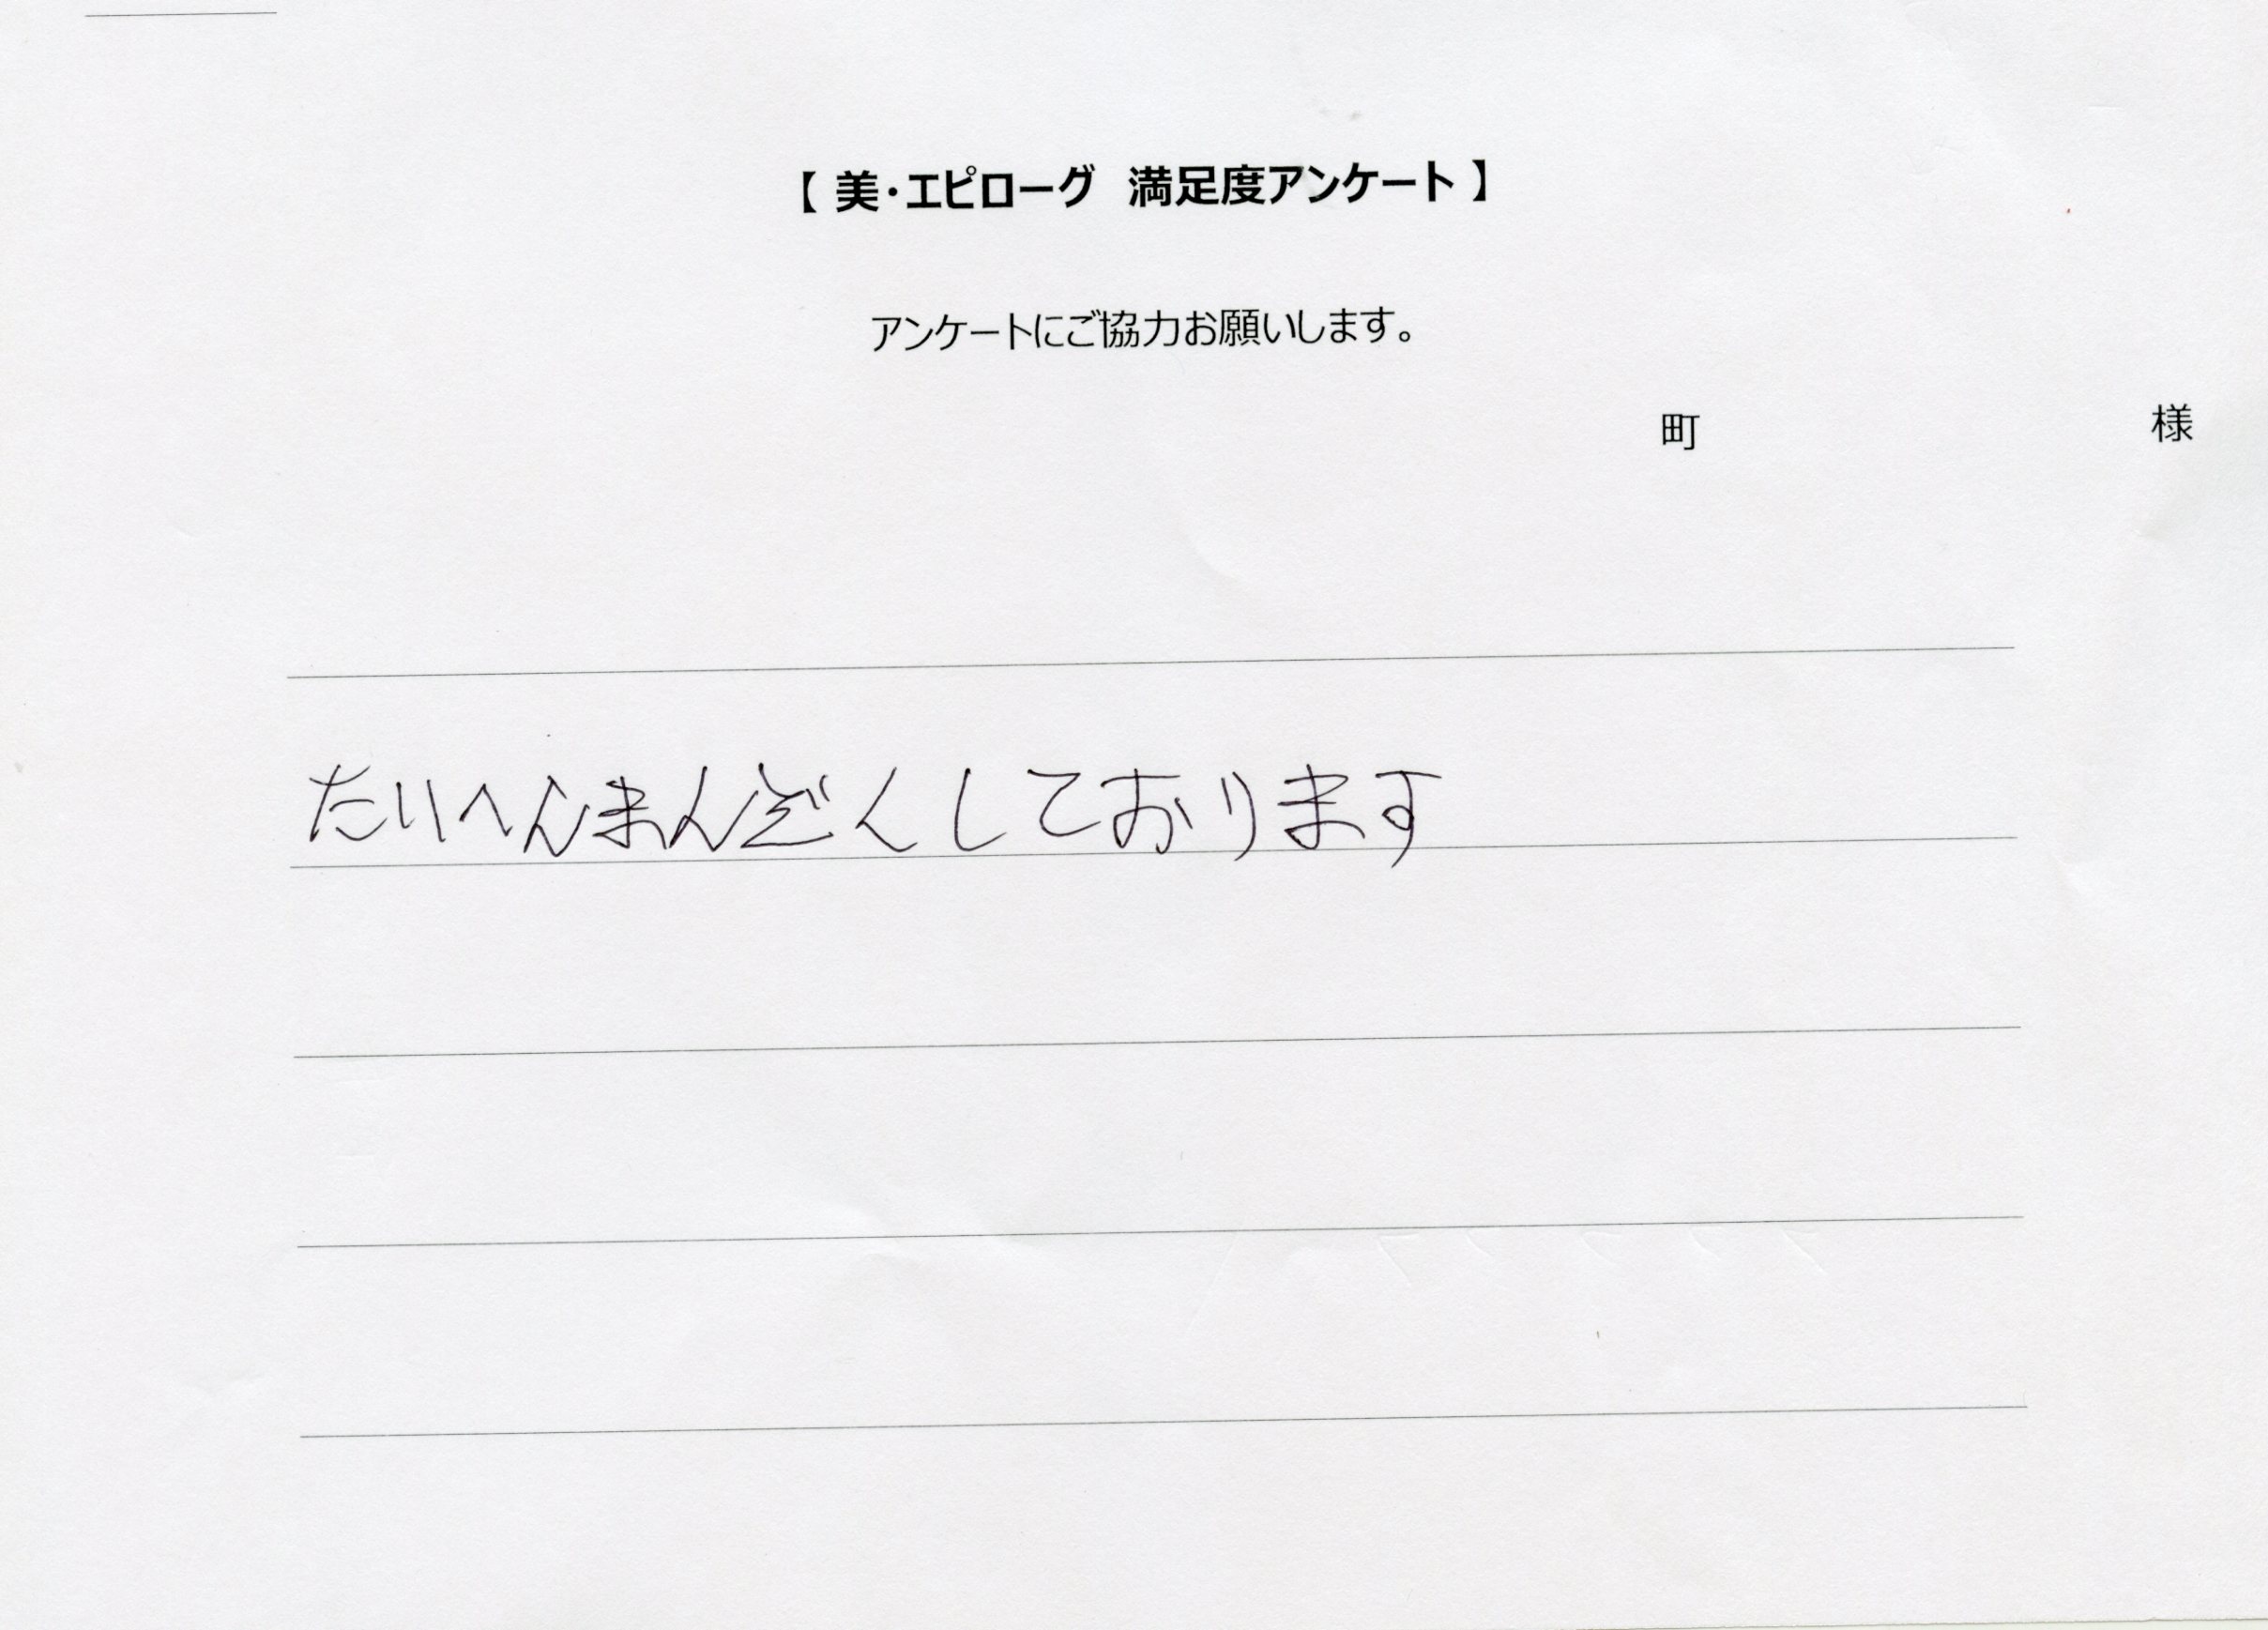 【 美・エピローグ 満足度アンケート 】
アンケートにご協力お願いします。
町 様
たいへんまんぞくしております